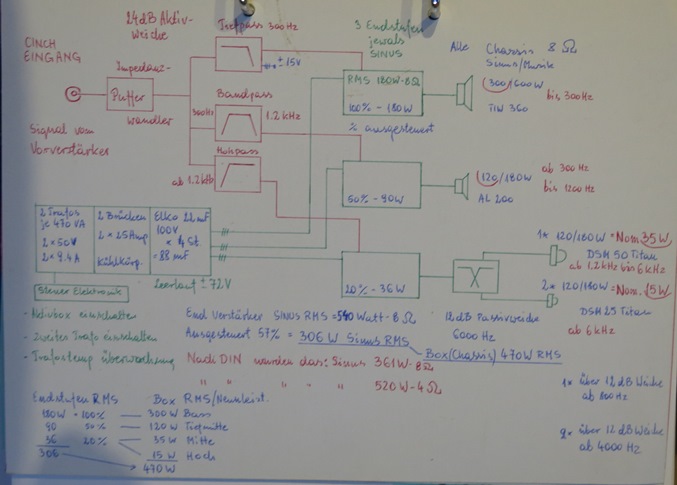 24dB Aktiv-
weiche
Tiefpass 300Hz
3 Endstufen
jeweils
SINUS
CINCH
EINGANG
± 15V
Alle Chassis 8 Ω
Sinus/Musik
Impedanz-
Puffer
wandler
Bandpass
300Hz
1.2 kHz
RMS 180W-8Ω
100% - 180W
% ausgesteuert
300/600W
bis 300Hz
TIW 360
Signal vom
Vorverstärker
Hohpass
ab 1.2kHz
50% - 90W
120/180W
AL 200
ab 300 Hz
bis 1200 Hz
2 Trafos
je 470VA
2 x 50V
2 x 9.4A
2 Brücken
2 x 25Amp
Kühlkörp.
Elko 22 mF
100V
x 4 St.
= 88 mF
Leerlauf ± 72V
20% - 36W
1* 120/180W = Nom 35W
DSM 50 Titan
ab 1.2kHz bis 6kHz
2* 120/180W = Nom. 15W
DSM 25 Titan
ab 6kHz
12dB Passivweiche
6000 Hz
Steuer Elektronik
- Aktivbox einschalten
- zweites Trafo einschalten
- Trafotemp überwachung
End Verstärker SINUS RMS = 540 Watt - 8 Ω
Ausgesteuert 57% = 306 W Sinus RMS
Box (Chassis) 470W RMS
Nach DIN würden das: Sinus 361W - 8Ω
" " " " 520W - 4Ω
1* über 12dB Weiche
ab 800Hz
2* über 12dB Weiche
ab 4000Hz
Endstufen RMS Box RMS/Nennleist.
180W - 100% 300W Bass
90 50% 120W Tiefmitte
36 20% 35W Mitte
306 15W Hoch
470W